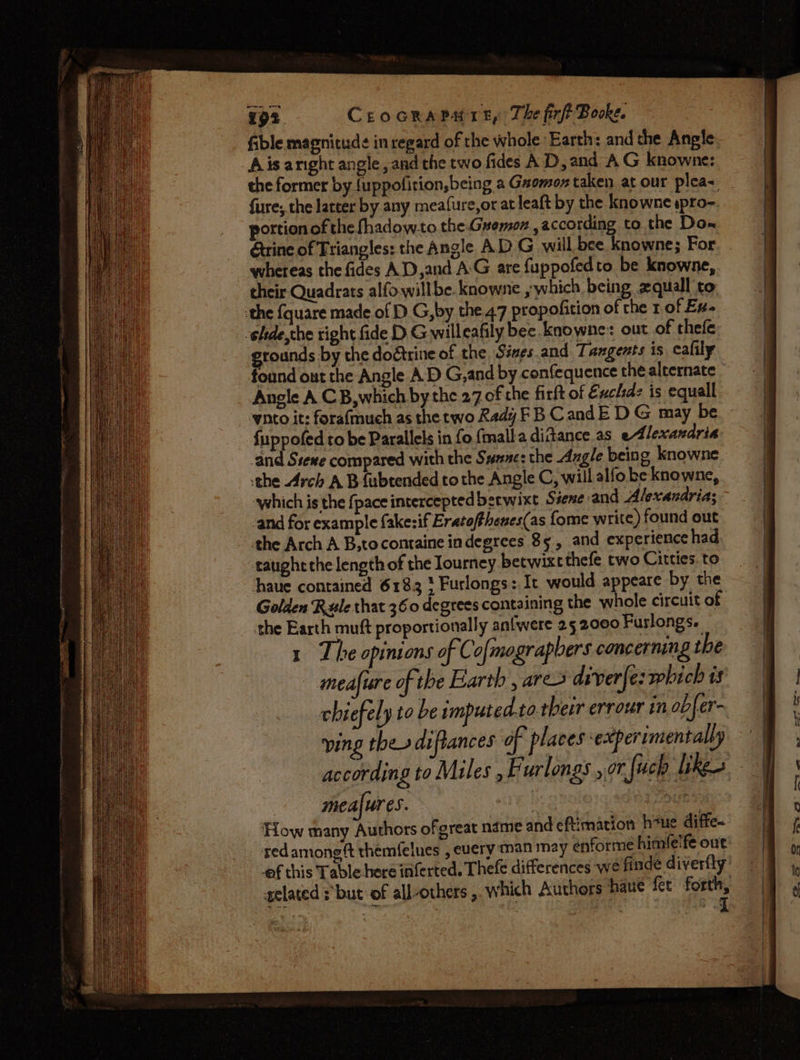 192 GEOGRAPHIE, The first Booke.
sible magnitude in regard of the whole Earth: and the Angle
A is a right angle, and the two sides A D, and A G knowne:
the former by supposition, being a Gnomon taken at our plea-
sure; the latter by any measure, or at least by the knowne pro-
portion of the shadow to the Gnomon, according to the Do-
ctrine of Triangles: the Angle A D G will bee knowne; For
whereas the sides A D, and A G are supposed to be knowne,
their Quadrats also will be knowne, which being æquall to
the square made of D G, by the 47 proposition of the 1 of Eu-
clide, the right side D G will easily bee knowne: out of these
grounds by the doctrine of the Sines and Tangents is easily
found out the Angle A D G, and by consequence the alternate
Angle A C B, which by the 27 of the first of Euclide is equall
vnto it: forasmuch as the two Radij F B C and E D G may be
supposed to be Parallels in so small a distance as Alexandria
and Siene compared with the Sunne: the Angle being knowne
the Arch A B subtended to the Angle C, will also be knowne,
which is the space intercepted betwixt Siene and Alexandria;
and for example sake: if Eratosthenes (as some write) found out
the Arch A B, to containe in degrees 8 5/, and experience had
taught the length of the Iourney betwixt these two Citties to
haue contained 6183 1/ Furlongs: It would appeare by the
Golden Rule that 360 degrees containing the whole circuit of
the Earth must proportionally answere 252000 Furlongs.
1 The opinions of Cosmographers concerning the
measure of the Earth, are diverse: which is
chiefely to be imputed to their errour in obser-
ving the distances of places experimentally
according to Miles, Furlongs, or such like
measures.
How many Authors of great name and estimation haue diffe-
red amongst themselues, euery man may enforme himselfe out
of this Table here inserted. These differences we finde diversly
related: but of all others, which Authors haue set forth,
I